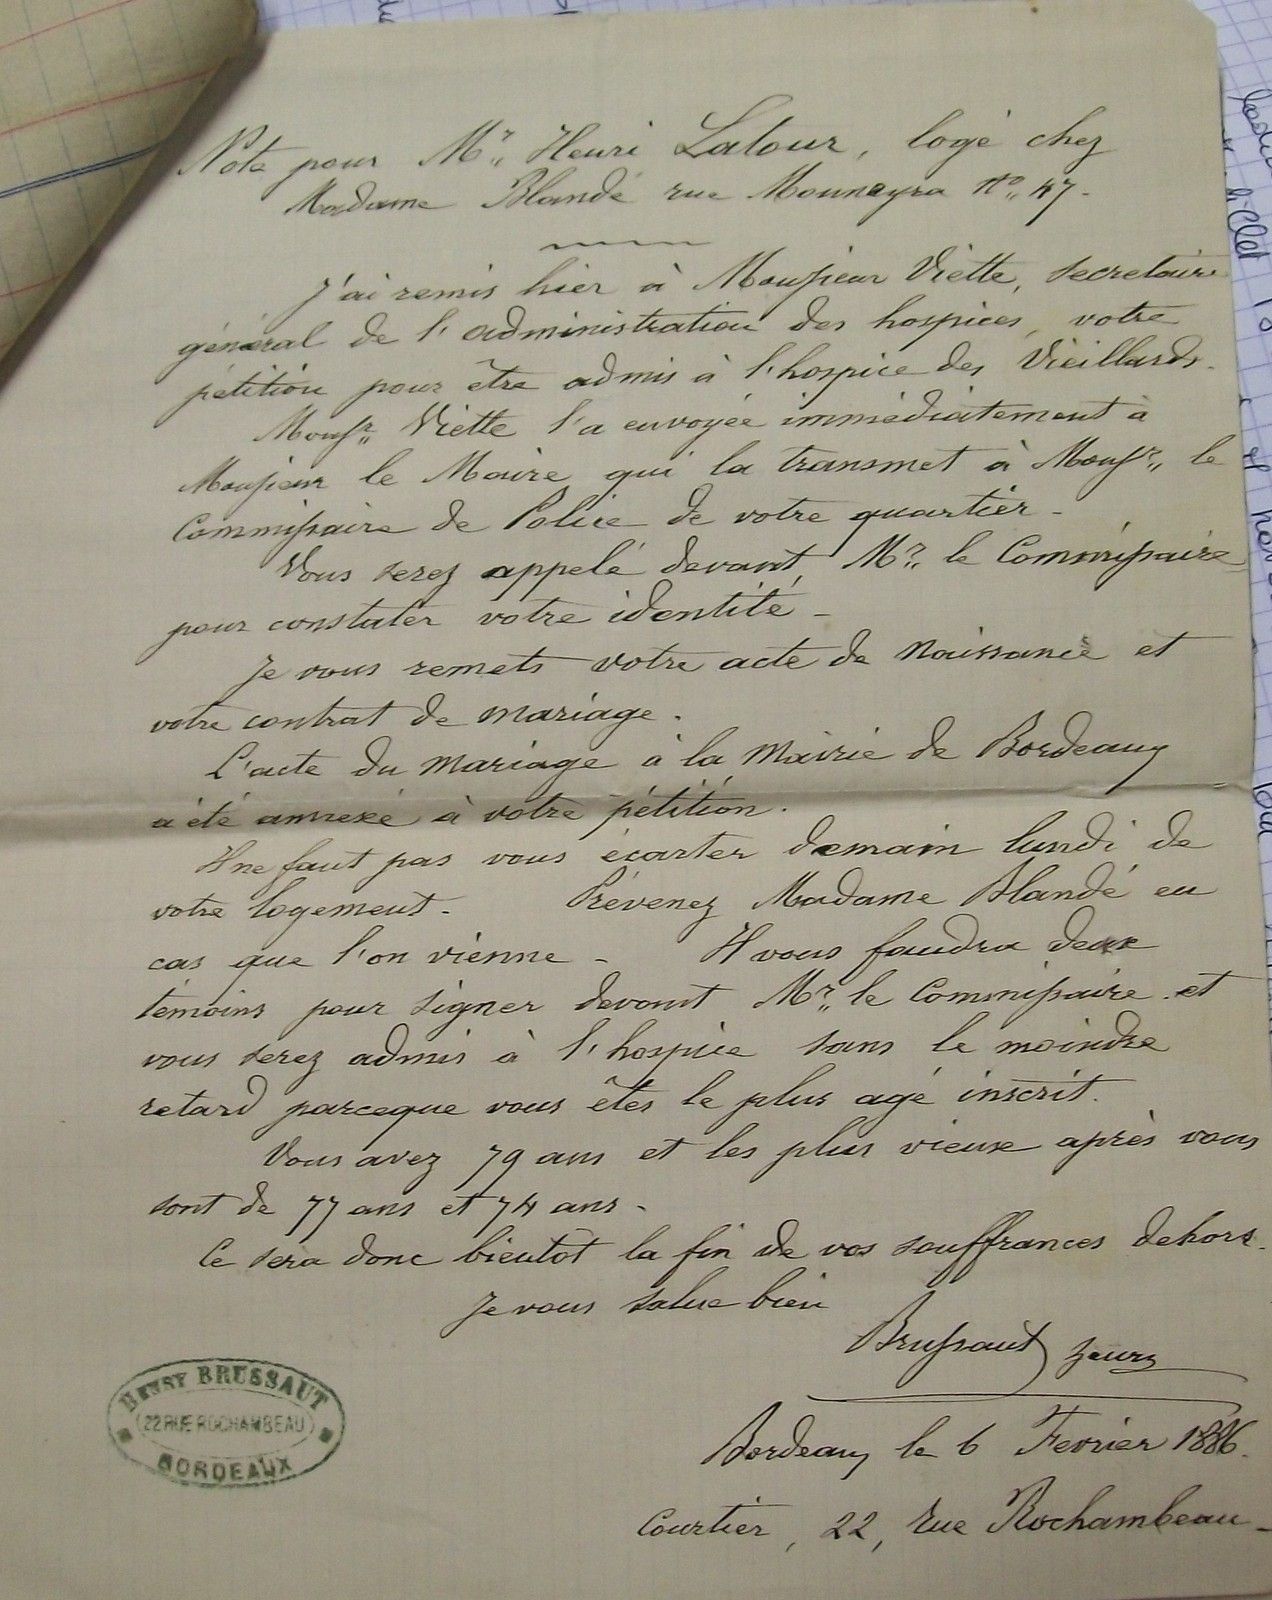 Note pour Mr. Henri Latour, logé chez
Madame Blandé rue Mouneyra No. 47.
J'ai remis hier à Monsieur Viette, secretaire
général de l'administration des hospices, votre
pétition pour être admis à l'hospice des Vieillards.
Monsr. Viette l'a envoyée immédiatement à
Monsieur le Maire qui la transmet à Monsr. le
Commissaire de Police de votre quartier -
Vous serez appelé devant Mr. le Commissaire
pour constater votre identité -
Je vous remets votre acte de naissance et
votre contrat de mariage.
L'acte du mariage à la Mairie de Bordeaux
a été annexé à votre pétition.
Il ne faut pas vous écarter demain lundi de
votre logement - Prévenez Madame Blandé en
cas que l'on vienne - Il vous faudra deux
témoins pour signer devant Mr. le Commissaire et
vous serez admis à l'hospice sans le moindre
retard parceque vous êtes le plus agé inscrit.
Vous avez 79 ans et les plus vieux après vous
sont de 77 ans et 74 ans -
Ce sera donc bientôt la fin de vos souffrances dehors.
Je vous salue bien
Brussaut
BORDEAUX
HENRY BRUSSAUT
22 RUE ROCHAMBEAU
Bordeaux le 6 Fevrier 1886.
Courtier, 22, rue Rochambeau -